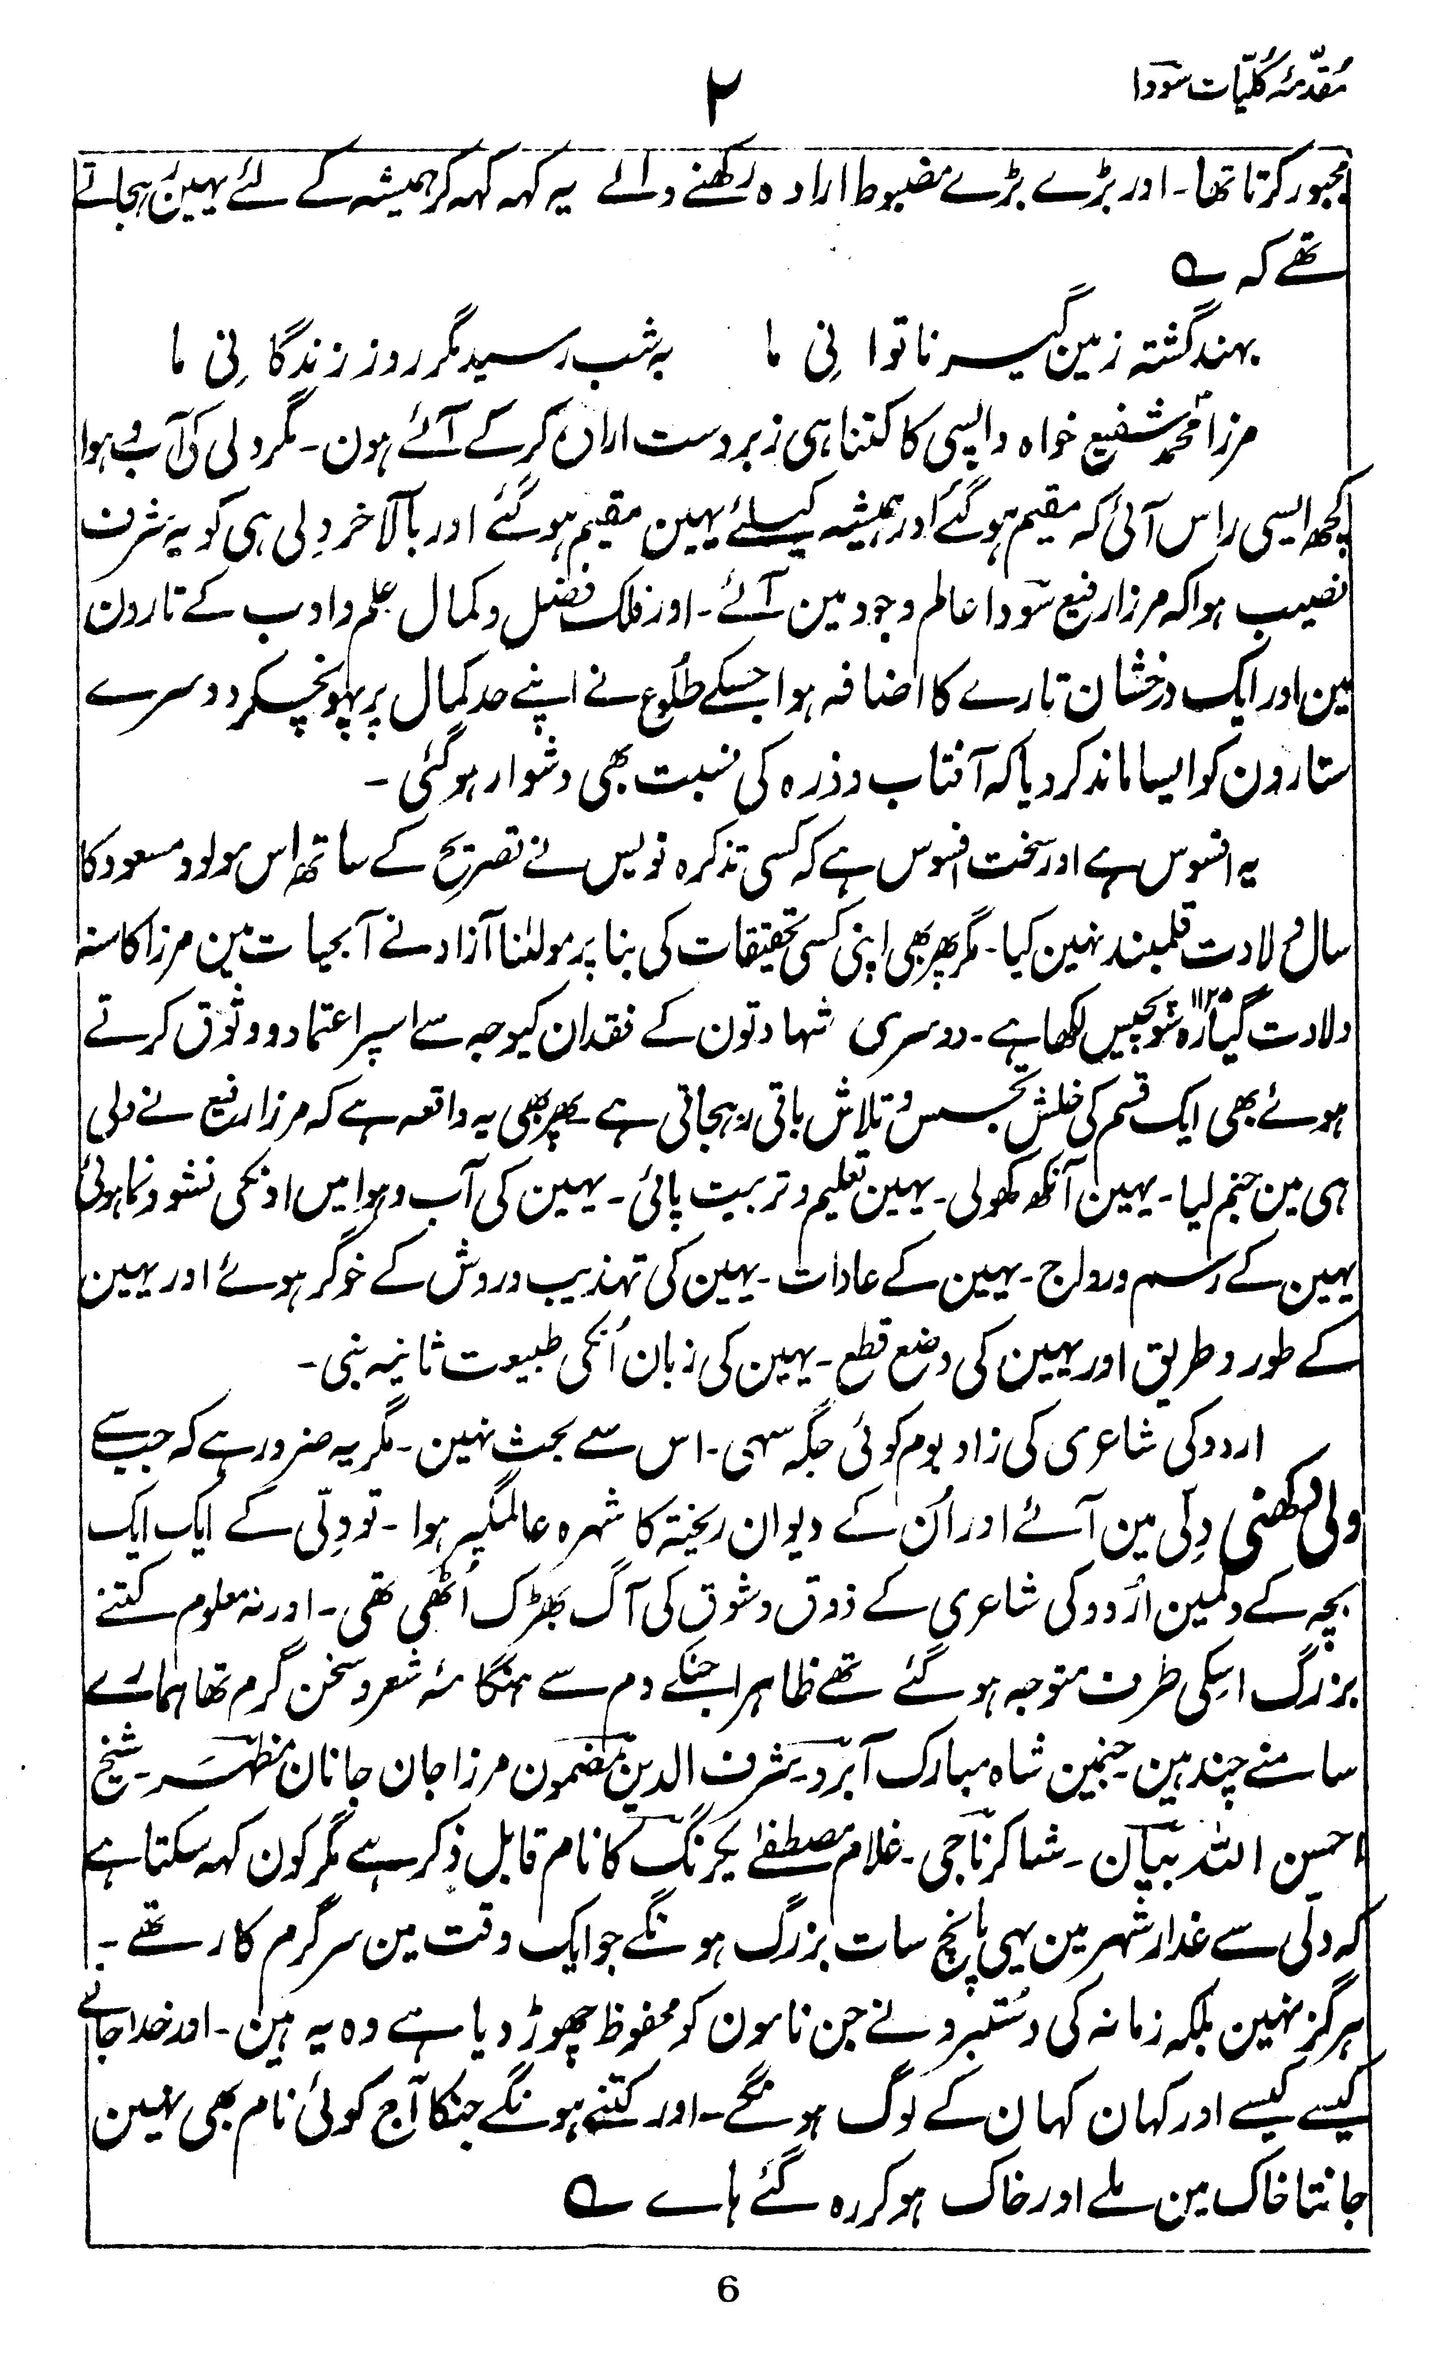 مُقدّمۂ کُلیّات سودا
۲
مجبور کرتا تھا۔ اور بڑے بڑے مضبوط ارادہ رکھنے والے یہ کہہ کہہ کر ہمیشہ کے لئے یہین رہجاتے
تھے کہ ؎
بہند گشتہ زمین گیر ناتوانیِ ما بہ شب رسید مگر روز زندگانیِ ما
مرزا محمد شفیع خواہ واپسی کا کتنا ہی زبردست ارادہ کر کے آئے ہون۔ مگر دلی کی آب و ہوا
کچھ ایسی راس آئی کہ مقیم ہو گئے اور ہمیشہ کیلئے یہین مقیم ہو گئے اور بالآخر دِلی ہی کو یہ شرف
نصیب ہوا کہ مرزا رفیع سودا عالم وجود مین آئے۔ اور فلک فضل و کمال علم و ادب کے تارون
مین اور ایک درخشان تارے کا اضافہ ہوا جسکے طلُوع نے اپنے حد کمال پر پہونچکر دوسرے
ستارون کو ایسا ماند کر دیا کہ آفتاب و ذرہ کی نسبت بھی دشوار ہو گئی ۔
یہ افسوس ہے اور سخت افسوس ہے کہ کسی تذکرہ نویس نے تصریح کے ساتھ اس مولود مسعود کا
سال ولادت قلمبند نہین کیا۔ مگر پھر بھی اپنی کسی تحقیقات کی بنا پر مولٰنا آزاد نے آبحیات مین مرزا کا سنہ
ولادت گیارہ سو پچیس ۱۱۲۵ لکھا ہے۔ دوسری شہادتون کے فقدان کیوجہ سے اسپر اعتماد و وثوق کرتے
ہوئے بھی ایک قسم کی خلش تجسس و تلاش باقی رہجاتی ہے۔ پھر بھی یہ واقعہ ہے کہ مرزا رفیع نے دلی
ہی مین جنم لیا۔ یہین آنکھ کھولی۔ یہین تعلیم و تربیت پائی۔ یہین کی آب و ہوا میں اونکی نشو و نما ہوئی
یہین کے رسم و رواج۔ یہین کے عادات۔ یہین کی تہذیب و روش کے خوگر ہوئے اور یہین
کے طور و طریق اور یہین کی وضع قطع۔ یہین کی زبان اُنکی طبیعت ثانیہ بنی۔
اردو کی شاعری کی زاد بوم کوئی جگہ سہی۔ اس سے بحث نہین۔ مگر یہ ضرور ہے کہ جب سے
ولی دکھنی دِلّی مین آئے اور اُن کے دیوان ریختہ کا شہرہ عالمگیر ہوا۔ تو دِلّی کے ایک ایک
بچہ کے دلمین اُردو کی شاعری کے ذوق و شوق کی آگ بھڑک اُٹھی تھی۔ اور نہ معلوم کتنے
بزرگ اسکی طرف متوجہ ہو گئے تھے ظاہرا جنکے دم سے ہنگامۂ شعر و سخن گرم تھا ہمارے
سامنے چند ہین۔ جنمین شاہ مبارک آبرو۔ شرف الدین مضمون مرزا جان جانان مظہر۔ شیخ
احسن اللہ بیان ۔ شاکر ناجی ۔ غلام مصطفےٰ یکرنگ کا نام قابل ذکر ہے مگر کون کہہ سکتا ہے
کہ دلّی سے غدار شہر مین یہی پانچ سات بزرگ ہونگے جو ایک وقت مین سرگرم کار تھے۔
ہرگز نہین بلکہ زمانہ کی دستبرد نے جن نامون کو محفوظ چھوڑ دیا ہے وہ یہ ہین۔ اور خدا جانے
کیسے کیسے اور کہان کہان کے لوگ ہونگے۔ اور کتنے ہونگے جنکا آج کوئی نام بھی نہین
جانتا خاک مین ملے اور خاک ہو کر رہ گئے ہاے ؎
6